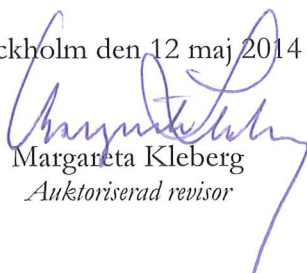 ckholm den 12 maj 2014
Margareta Kleberg
Auktoriserad revisor